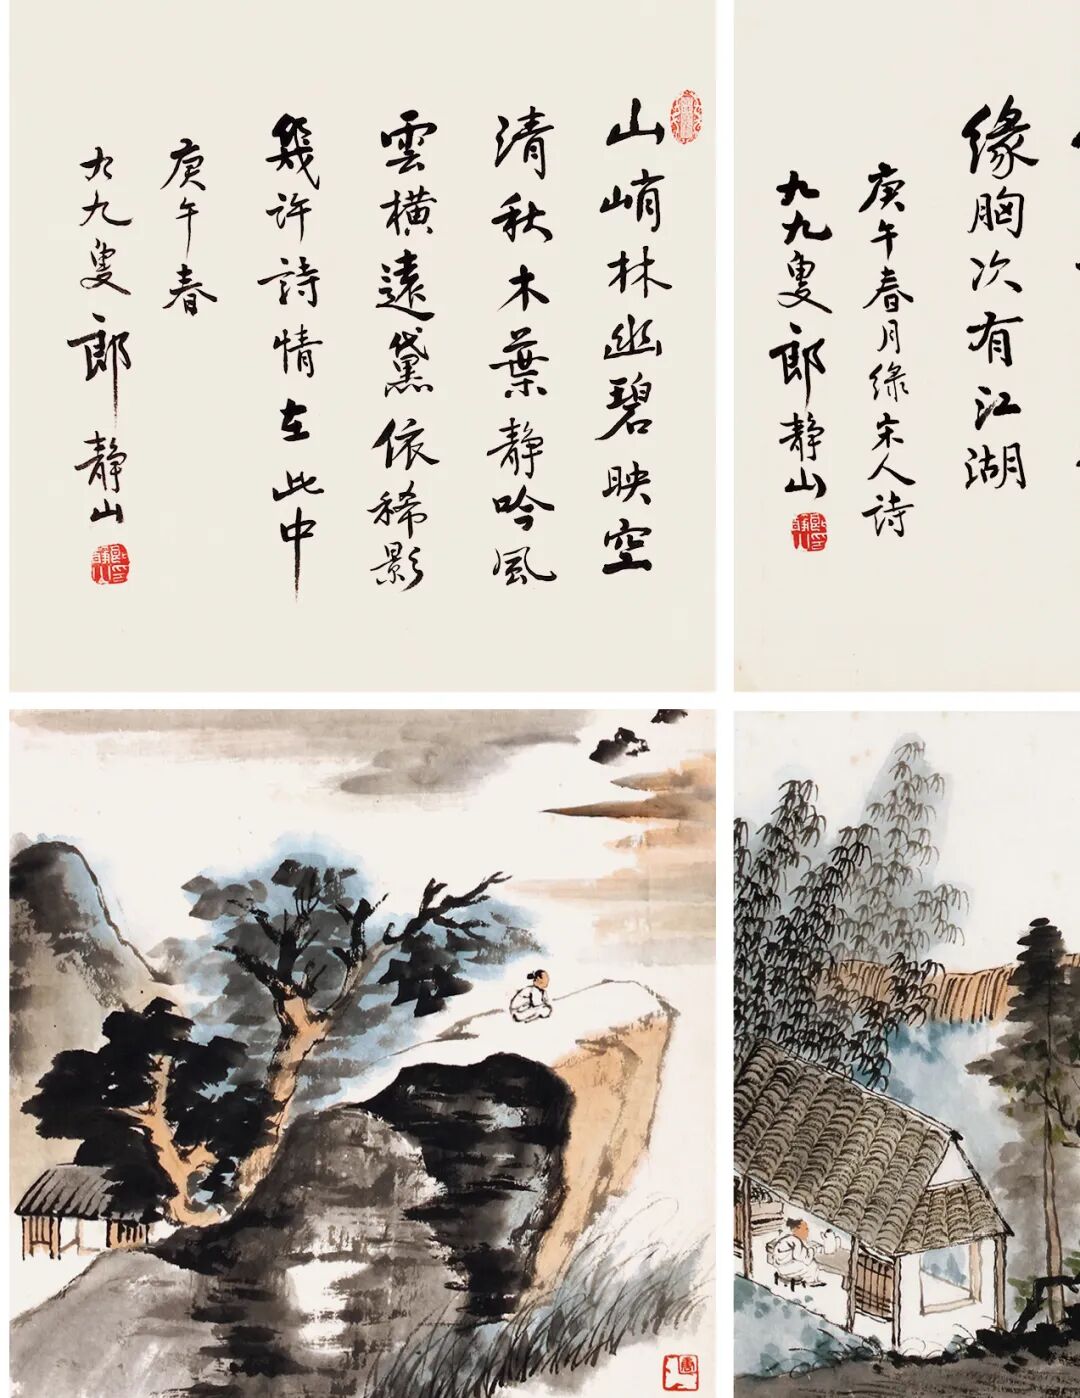 山峭林幽碧映空
清秋木葉静吟風
雲横遠黛依稀影
幾许詩情在此中
庚午春
九九叟郎静山
缘胸次有江湖
庚午春月緑宋人詩
九九叟郎静山